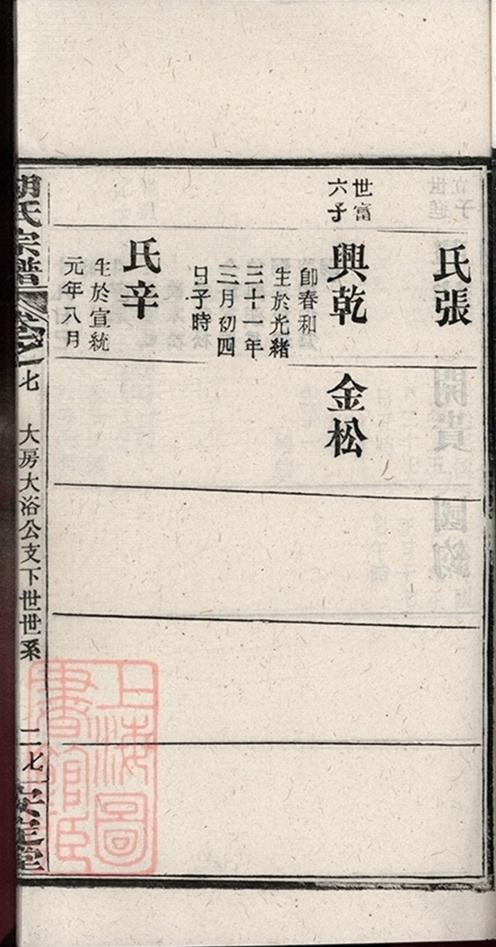 氏張
世富
六子
興乾
即春和
生於光緒
三十一年
三月初四
日子時
金松
氏辛
生於宣統
元年八月
胡氏宗譜
卷之七
大房大浴公支下世世系
二七
安定堂
上海圖
書館藏